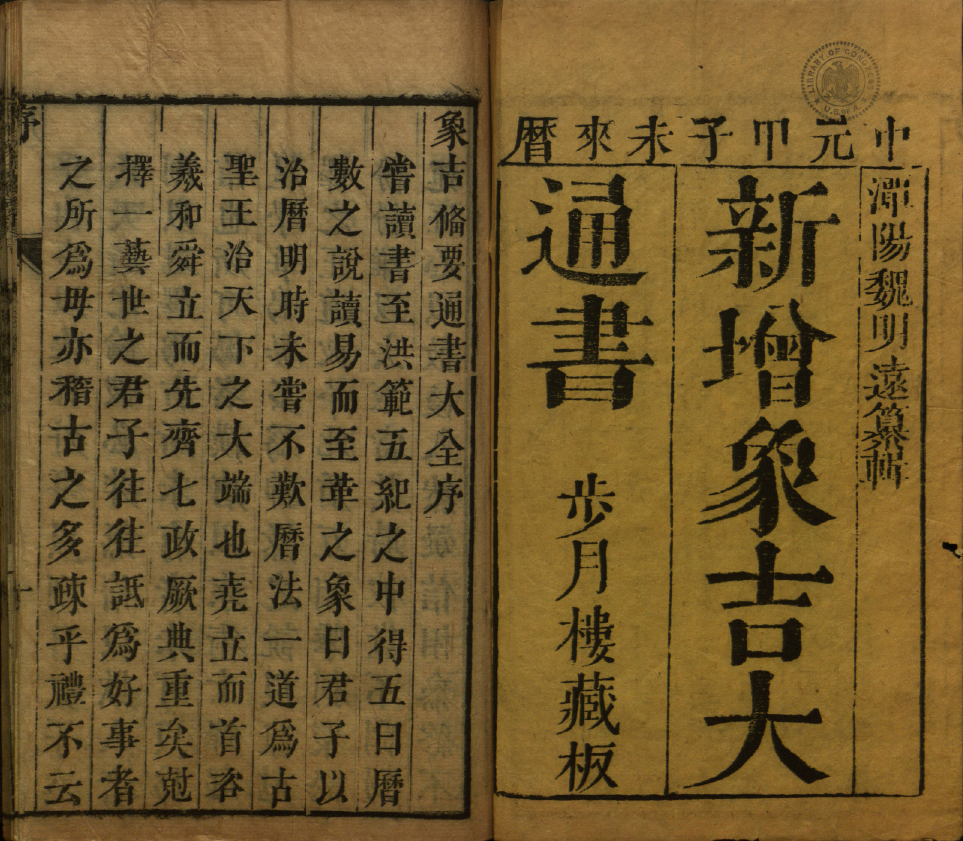 中元甲子未來曆
潭陽魏明遠纂輯
新增象吉大
通書 步月樓藏板
LIBRARY OF CONGRESS
象吉俻要通書大全序
嘗讀書至洪範五紀之中得五曰曆
數之說讀易而至革之象曰君子以
治曆明時未嘗不歎曆法一道爲古
聖王治天下之大端也堯立而首咨
羲和舜立而先齊七政厥典重矣尅
擇一藝世之君子往往詆爲好事者
之所爲毋亦稽古之多疎乎禮不云
序